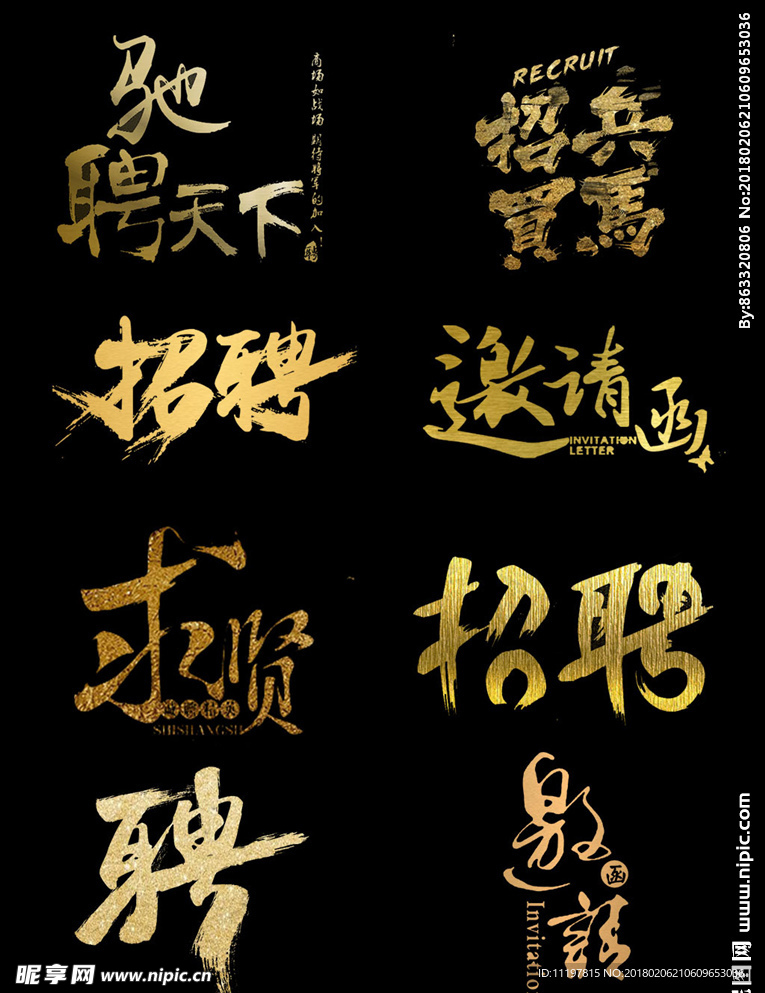 驰
聘天下
商场如战场 期待将军的加入！
RECRUIT
招兵
買馬
招聘
邀请函
INVITATION
LETTER
求贤
SHISHANGSH
招聘
聘
邀
函
請
Invitatio
昵享网 www.nipic.cn
ID:11197815 NO:20180206210609653036
By:863320806 No:20180206210609653036
www.nipic.com